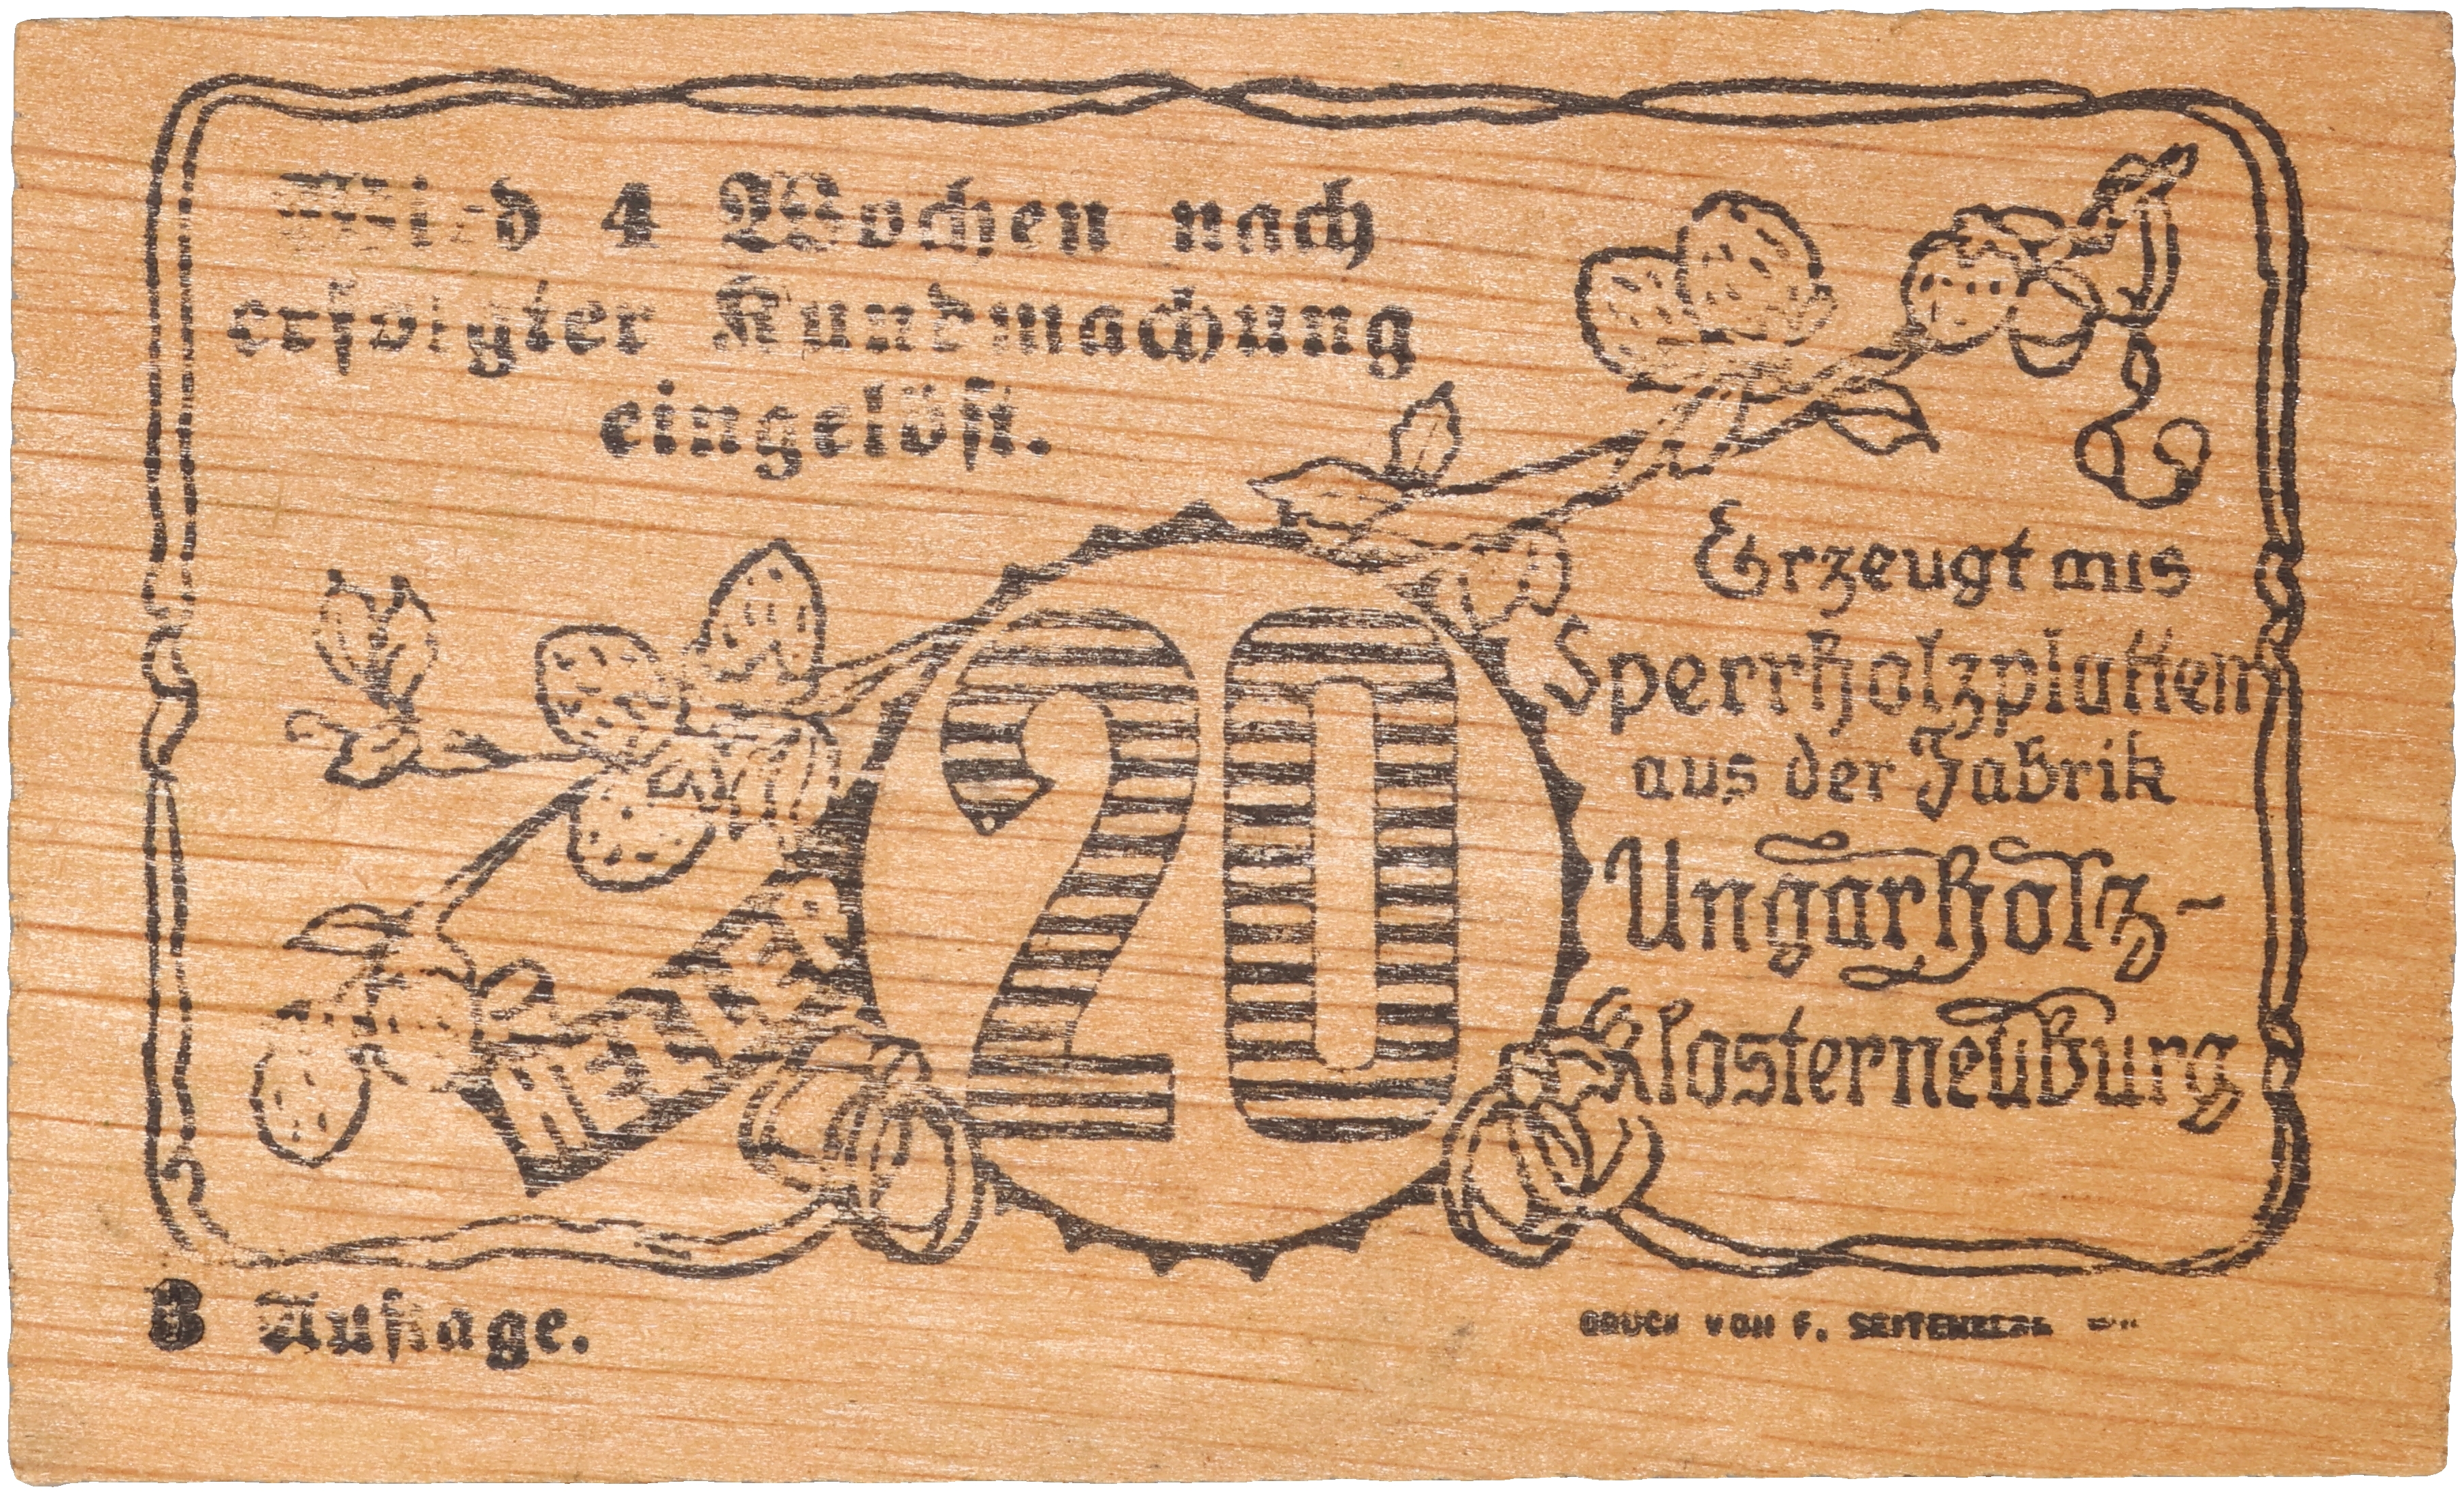 Wird 4 Wochen nach
erfolgter Kundmachung
eingelöst.
20
Erzeugt aus
Sperrholzplatten
aus der Fabrik
Ungarholz-
Klosterneuburg
8 Auflage.
DRUCK VON F. SEITENBERG